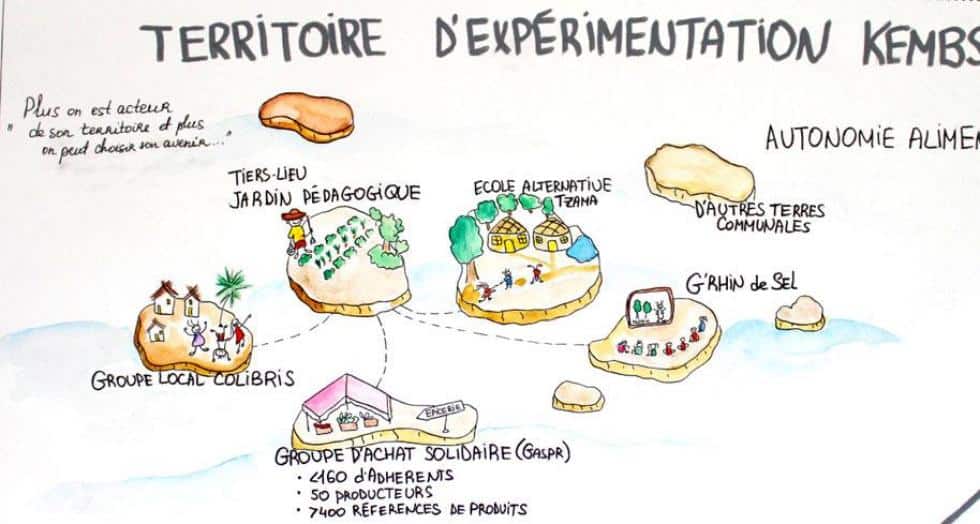 TERRITOIRE D'EXPÉRIMENTATION KEMBS
Plus on est acteur
" de son territoire et plus
on peut choisir son avenir... "
AUTONOMIE ALIMEN
TIERS-LIEU
JARDIN PÉDAGOGIQUE
ECOLE ALTERNATIVE
TZAMA
D'AUTRES TERRES
COMMUNALES
G'RHIN de SEL
GROUPE LOCAL COLIBRIS
EPICERIE
GROUPE D'ACHAT SOLIDAIRE (GASPR)
• 460 d'ADHERENTS
• 50 PRODUCTEURS
• 7400 RÉFÉRENCES DE PRODUITS